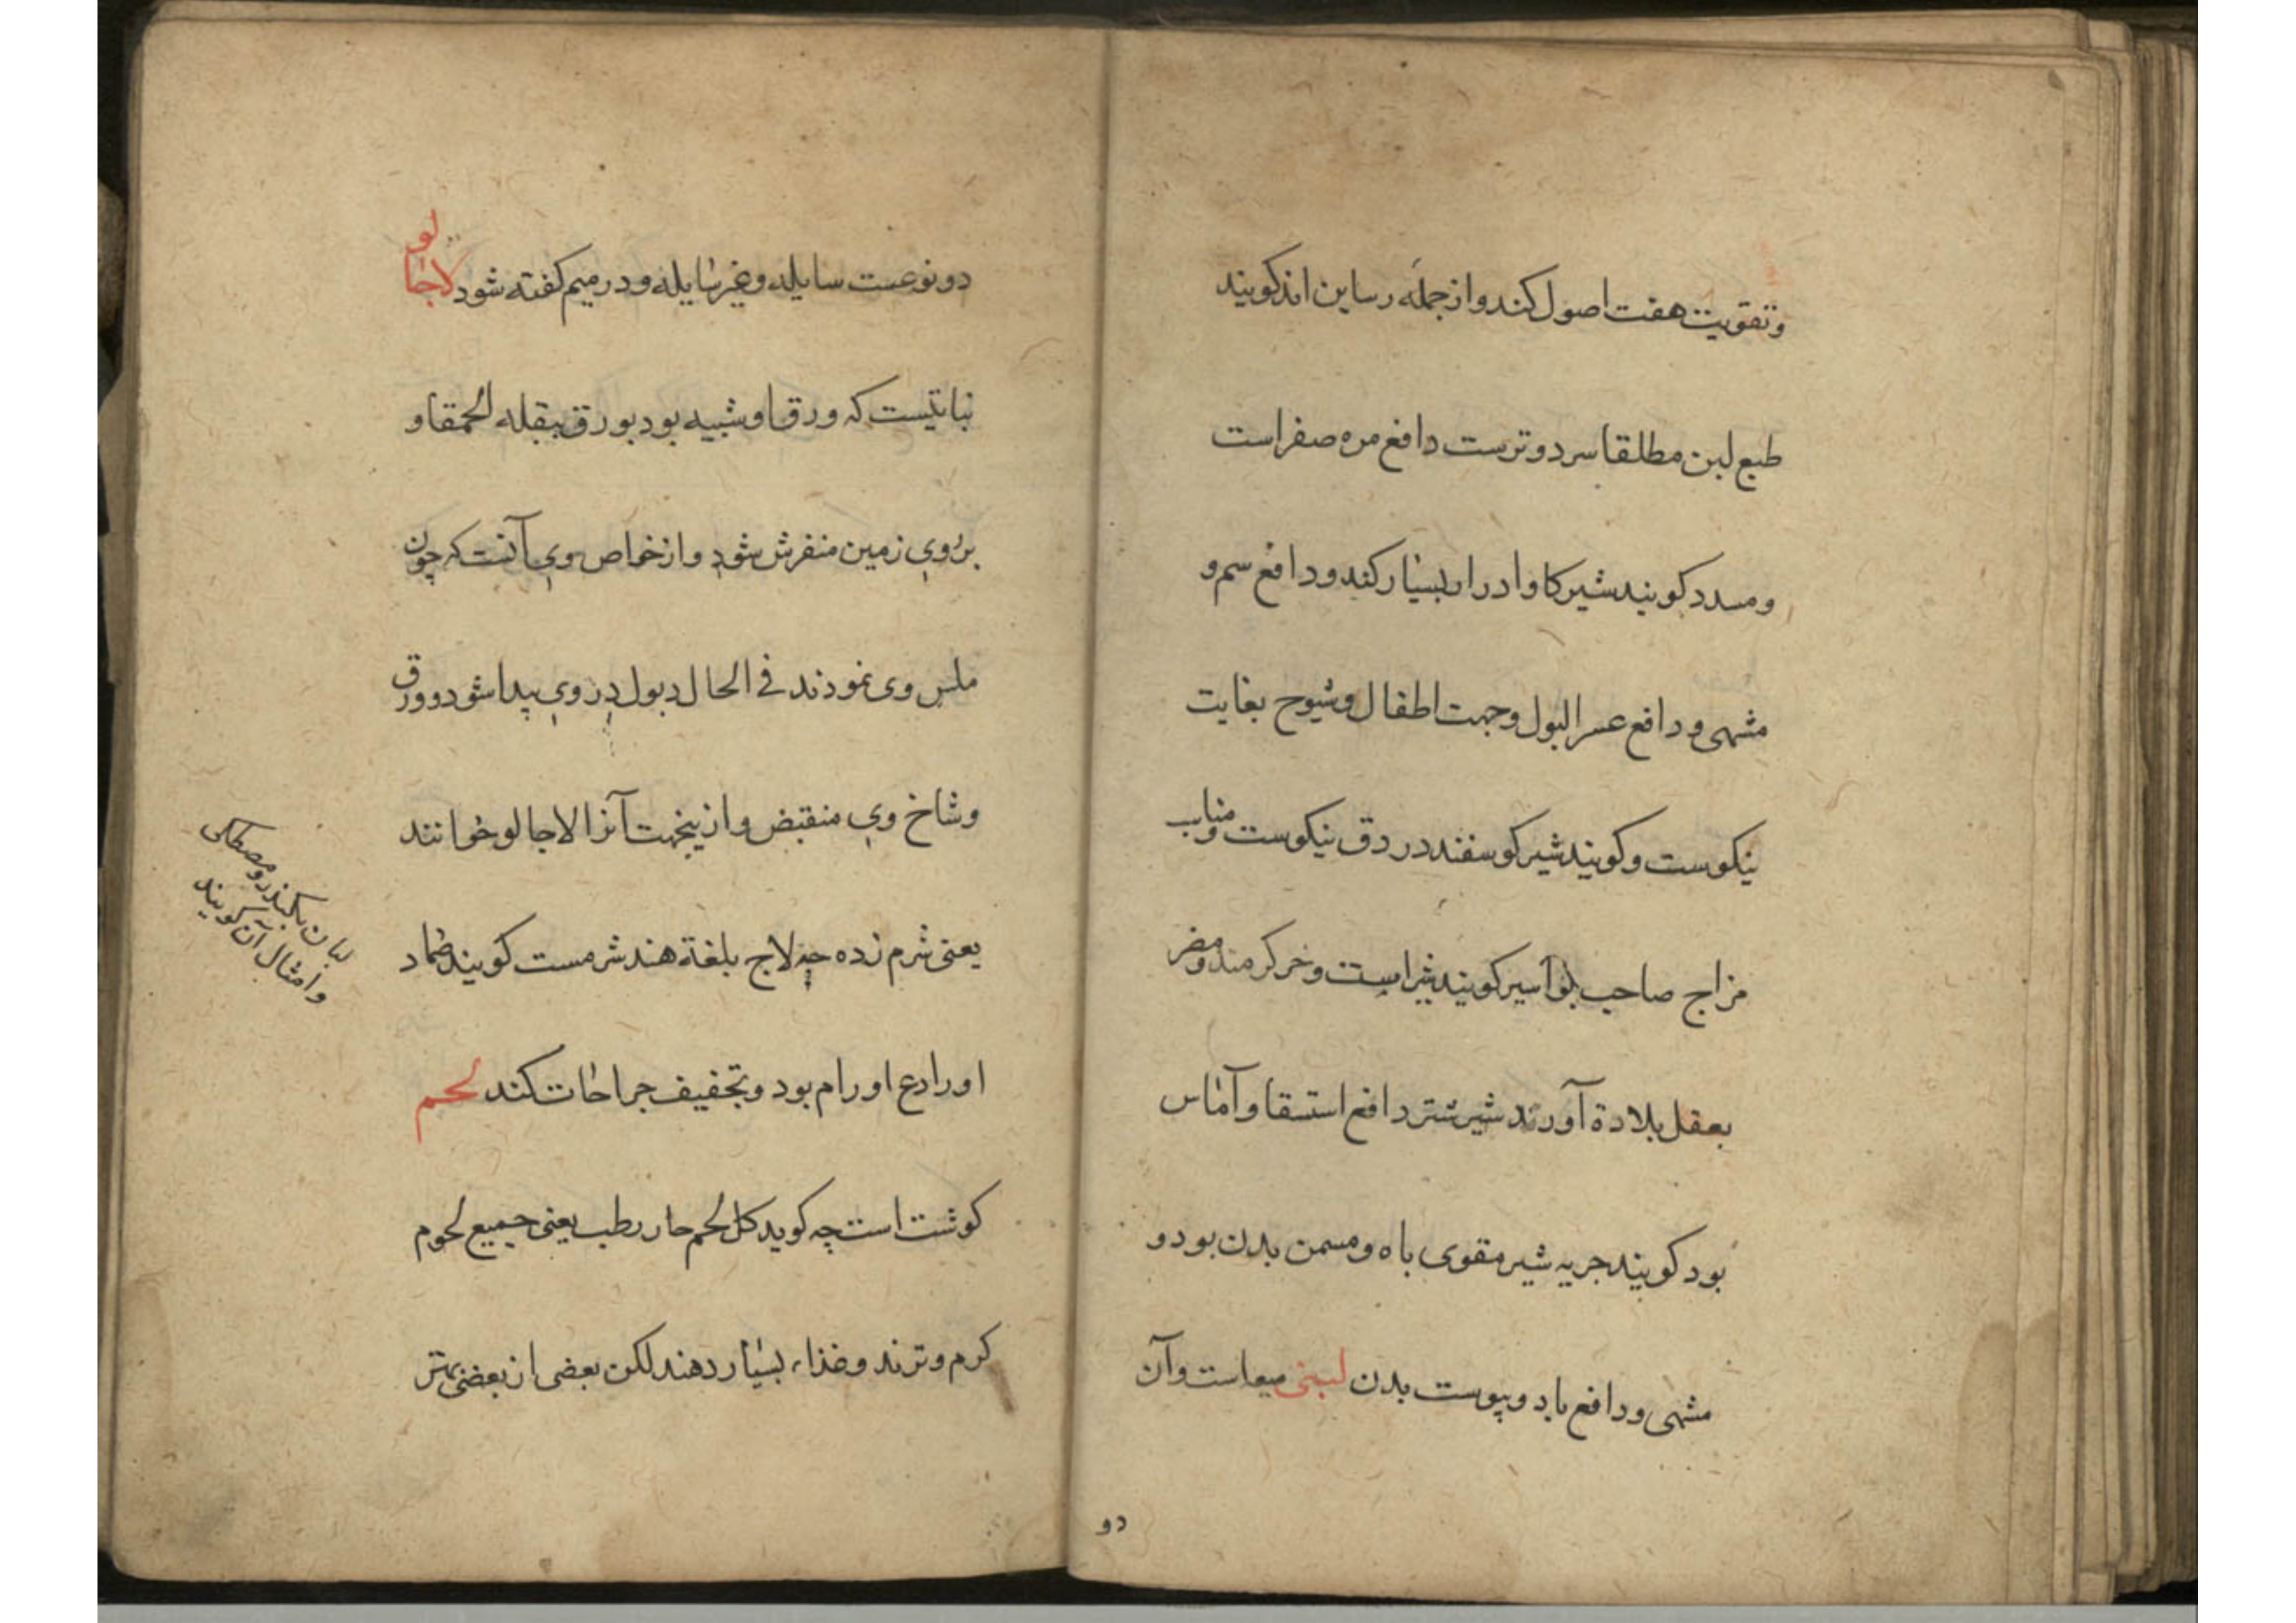 وتقویت هفت اصول کند و از جمله رساین اند کویند
طبع لبن مطلقا سرد و ترست دافع مره صفراست
و مسدد کویند شیر کاو ادرار بسیار کند و دافع سم و
مشهی و دافع عسر البول و جهت اطفال و شیوح بغایت
نیکوست و کویند شیر کوسفند در دق نیکوست و مناسب
مزاج صاحب بواسیر کویند شیر اسپ و خر کرمند و مضر
بعقل بلادة آورند شیر شتر دافع استسقا و آماس
بود کویند جریه شیر مقوی باه و مسمن بدن بود و
مشهی و دافع باد و پوست بدن لبنی میعاست و آن
دو
دو نوعست سایله و غیر سایله و در میم کفته شود لاجالو
نباتیست که ورق او شبیه بود بورق ببقله الحمقا و
بر روی زمین منفرش شود و از خواص وی آنست که چون
ملس وی نمودند فی الحال دبول در وی پیدا شود و ورق
و شاخ وی منقبض و ازینجهت آنرا لاجالو خوانند
یعنی شرم زده چه لاج بلغة هند شرمست کویند ضماد
او رادع اورام بود و تجفیف جراحات کند لحم
کوشت است چه کوید کل لحم حار رطب یعنی جمیع لحوم
کرم و ترند و غذاء بسیار دهند لکن بعضی از بعضی بهتر
لبان بکندر و مصطکی
و امثال آن کویند